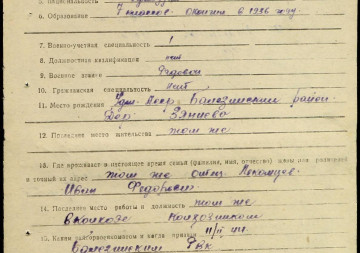 6. Образование 7 классов окончил в 1936 году.
7. Военно-учетная специальность
8. Должностная квалификация нет
9. Военное звание Рядовой
10. Гражданская специальность нет
11. Место рождения Удм. Балезинский район
Дер.
12. Последнее место жительства там же
13. Где проживает в настоящее время семья (фамилия, имя, отчество)
и точный их адрес там же отец
Иван Федорович
14. Последнее место работы и должность там же
в колхозе Колхозником
15. Каким райвоенкоматом и когда призван
Балезинским РВК